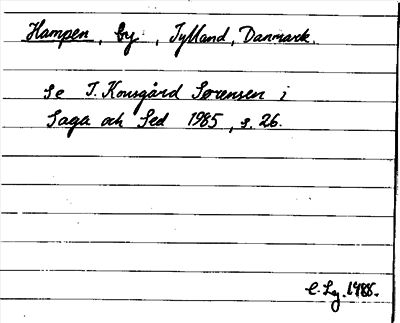 Hampen, by, Jylland, Danmark.
Se J. Kousgård Sørensen i
Saga och Sed 1985, s. 26.
1988.